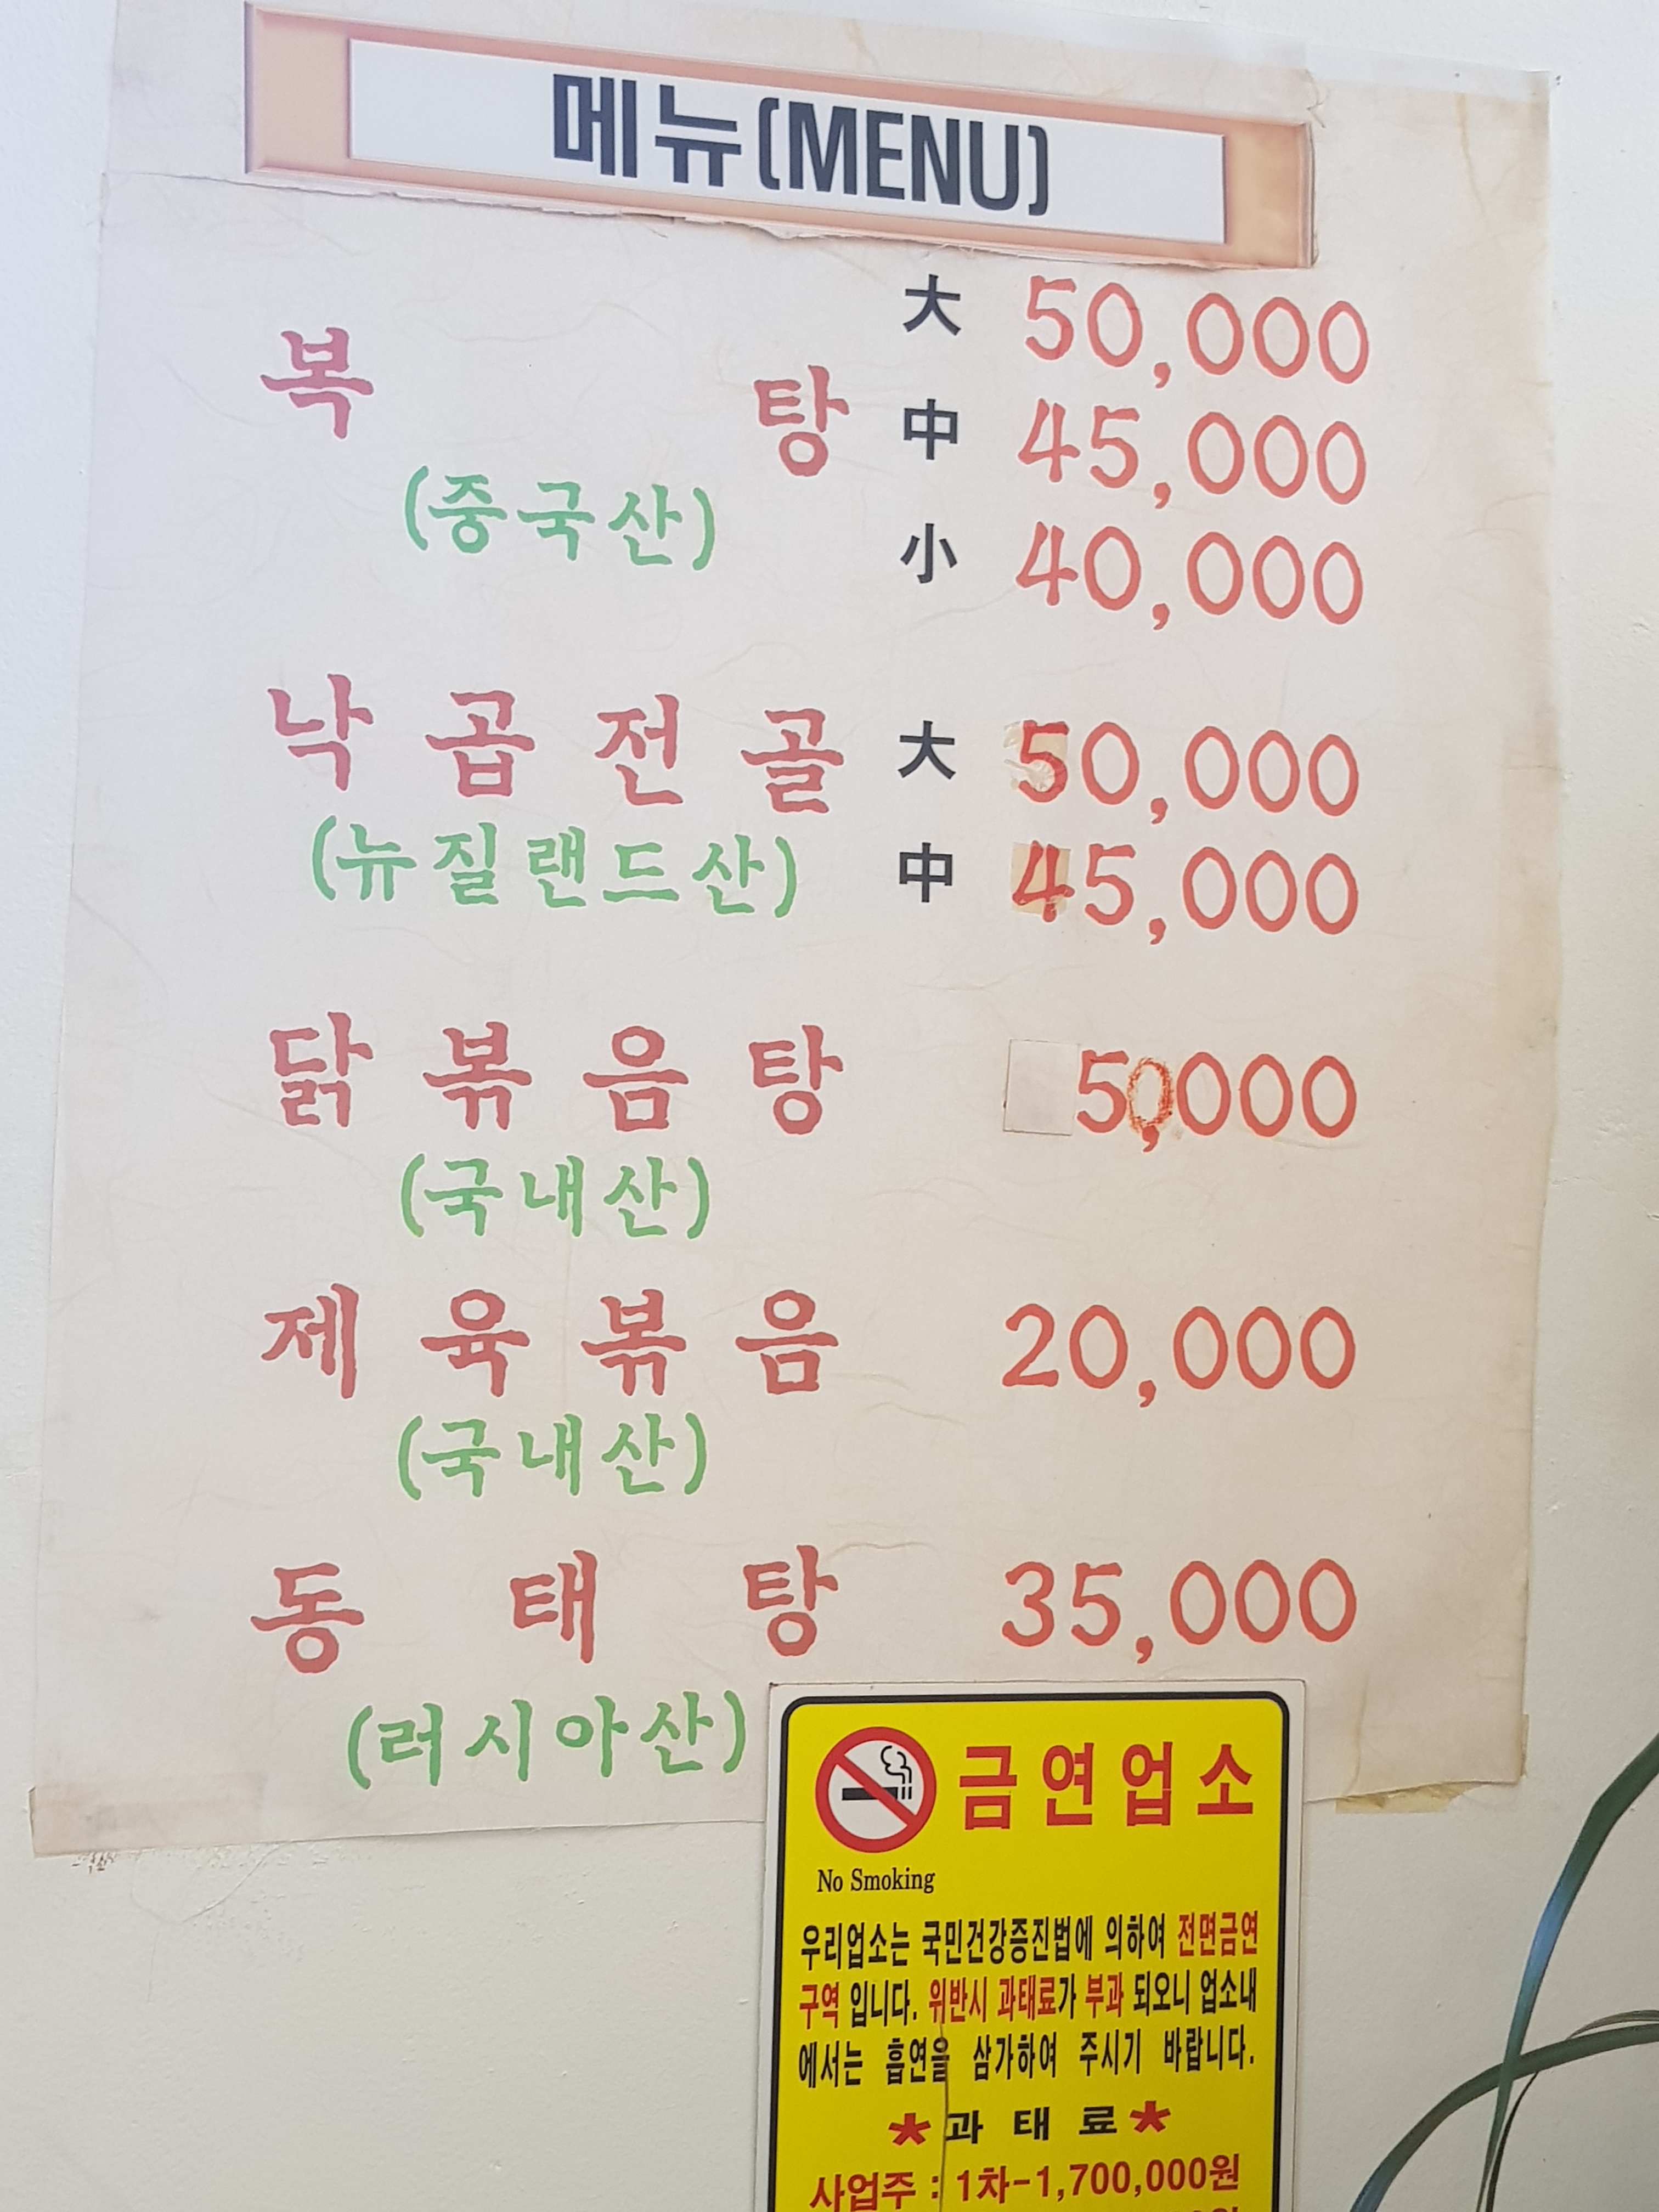 메뉴(MENU)
복 탕 大 50,000
中 45,000
(중국산)
小 40,000
낙곱전골 大 50,000
(뉴질랜드산) 中 45,000
닭볶음탕 50,000
(국내산)
제육볶음 20,000
(국내산)
동태탕 35,000
(러시아산)
금연업소
No Smoking
우리업소는 국민건강증진법에 의하여 전면금연
구역 입니다. 위반시 과태료가 부과 되오니 업소내
에서는 흡연을 삼가하여 주시기 바랍니다.
*과 태 료*
사업주 : 1차-1,700,000원